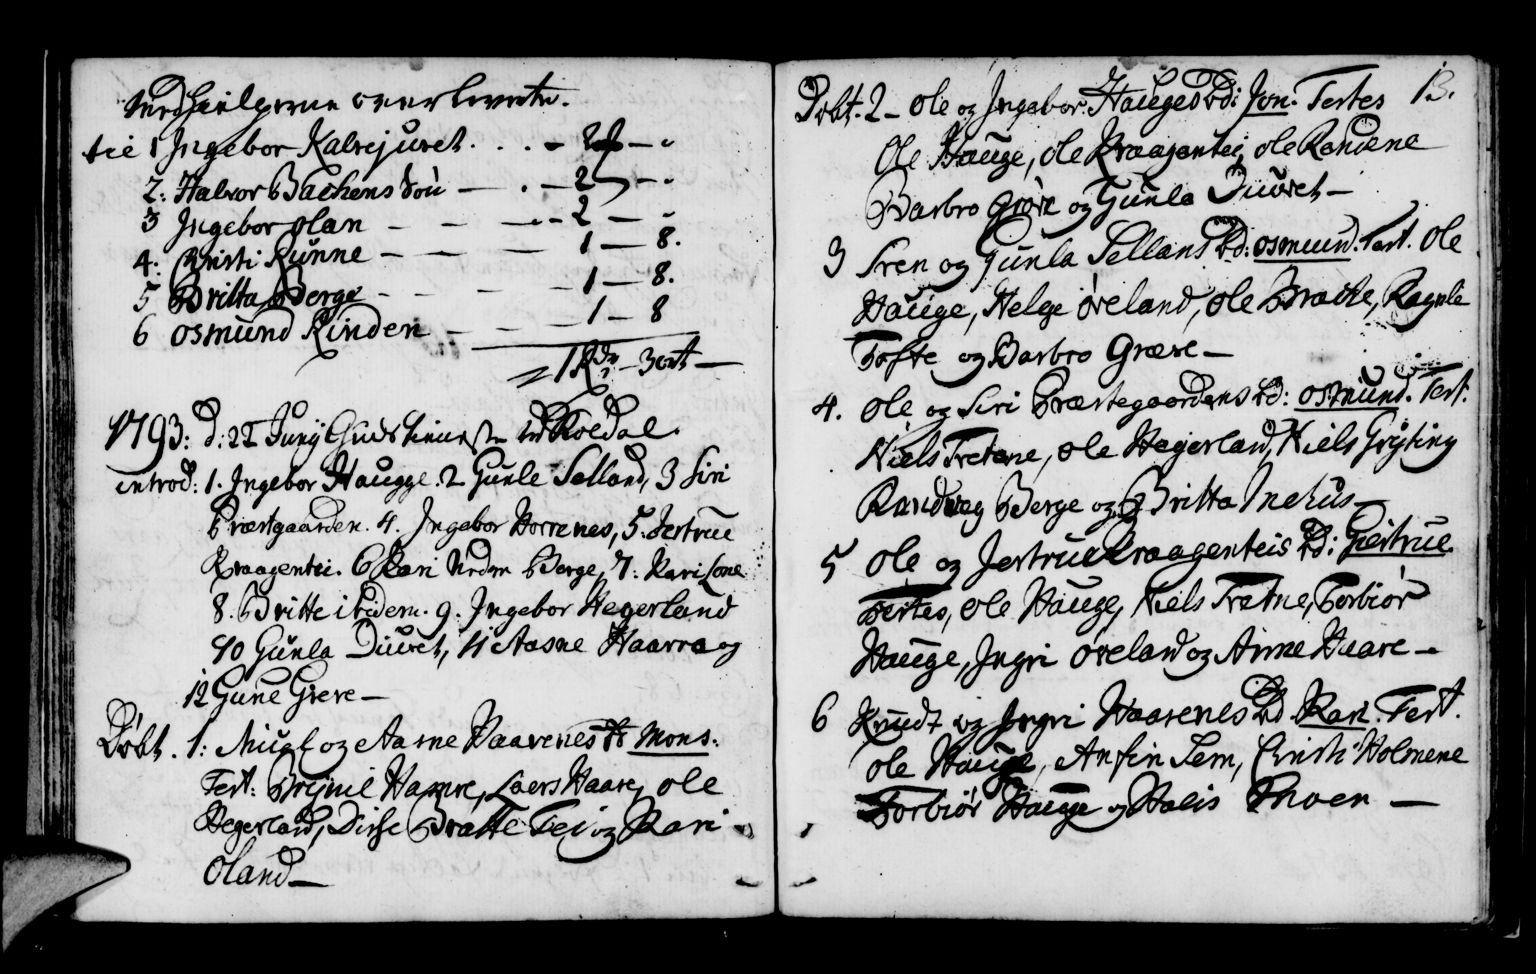 Medhielperne overleverte.
til 1 Ingebor Kalvejuvet . . . – 2 –
2. Halvor Bachens Søn – . – 2 –
3 Ingebor Olan – – – 2 –
4. Kristi Runne – – – 1 – 8.
5 Britta Berge – – – 1 – 8.
6 Osmund Kinden – – – 1 – 8
1 Rdr – 3 ort –
1793: d: 22 Juny Gudstieneste ved Roldal.
introd: 1. Ingebor Haugge. 2 Gunle Selland, 3 Siri
Præstgaarden. 4. Ingebor Horrenes, 5. Jertrue
Kraagentei. 6 Kari Nedre Berge, 7: Kari Lone
8. Britte ibidem. 9. Ingebor Hegerland
10 Gunla Diuvet, 11 Aasne Haarra og
12 Gune Grere –
Døbt. 1: og Aasne Haavenes Mons.
Test: Brynil Hamre, Laers Haare, Ole
Hegerland, Dirse Bratte Tei og Kari
Oland –
13.
Døbt. 2 – Ole og Ingebor Hauges bd: Jon. Testes
Ole Hauge, Ole Kraagentei, Ole Randene
Barbro Grøve og Gunla Diuvet –
3 Sren og Gunla Sellans bd: Osmund. Test. Ole
Hauge, Helge Øveland, Ole Bratte, Ragnle
Tofte og Barbro Græve –
4. Ole og Siri Præstegaardens bd: Osmund. Test:
Niels Tretene, Ole Hegerland, Niels Gryting
Randveg Berge og Britta Nehus –
5 Ole og Jertrue Kraagenteis bd: Giertrue.
Testes, Ole Hauge, Niels Tretne, Torbiør
Hauge, Ingri Øveland og Anne Haare –
6 Knudt og Ingri Haavenes bd Kari. Test.
Ole Hauge, Anfin Sem, Cristi Holmene
Torbiør Hauge og Halis Thoen –